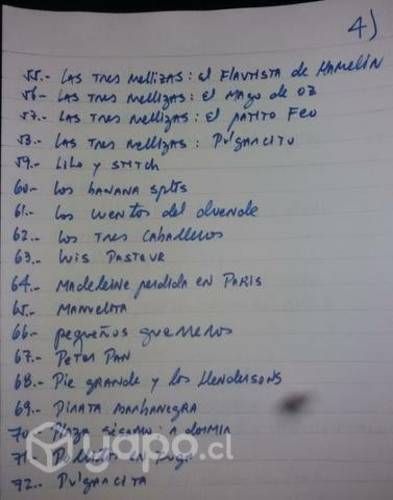 4)
55.- LAS TRES MELLIZAS: el FLAUTISTA de HAMELIN
56- LAS TRES MELLIZAS: EL MAGO de OZ
57.- LAS TRES MELLIZAS: EL PATITO FEO
58.- LAS TRES MELLIZAS: PULGARCITO
59.- LILO y STITCH
60.- Los BANANA SPLITS
61.- Los cuentos del duende
62.- Los TRES CABALLEROS
63.- LUIS PASTEUR
64.- MADELEINE perdida en PARIS
65.- MANUELITA
66- pequeños guerreros
67.- PETER PAN
68.- PIE GRANDE y los HENDERSONS
69.- PIRATA BARBANEGRA
70.- PLAZA SESAMO: A DORMIR
71.- Pollitos en Fuga
72.- PULGARCITA
yapo.cl